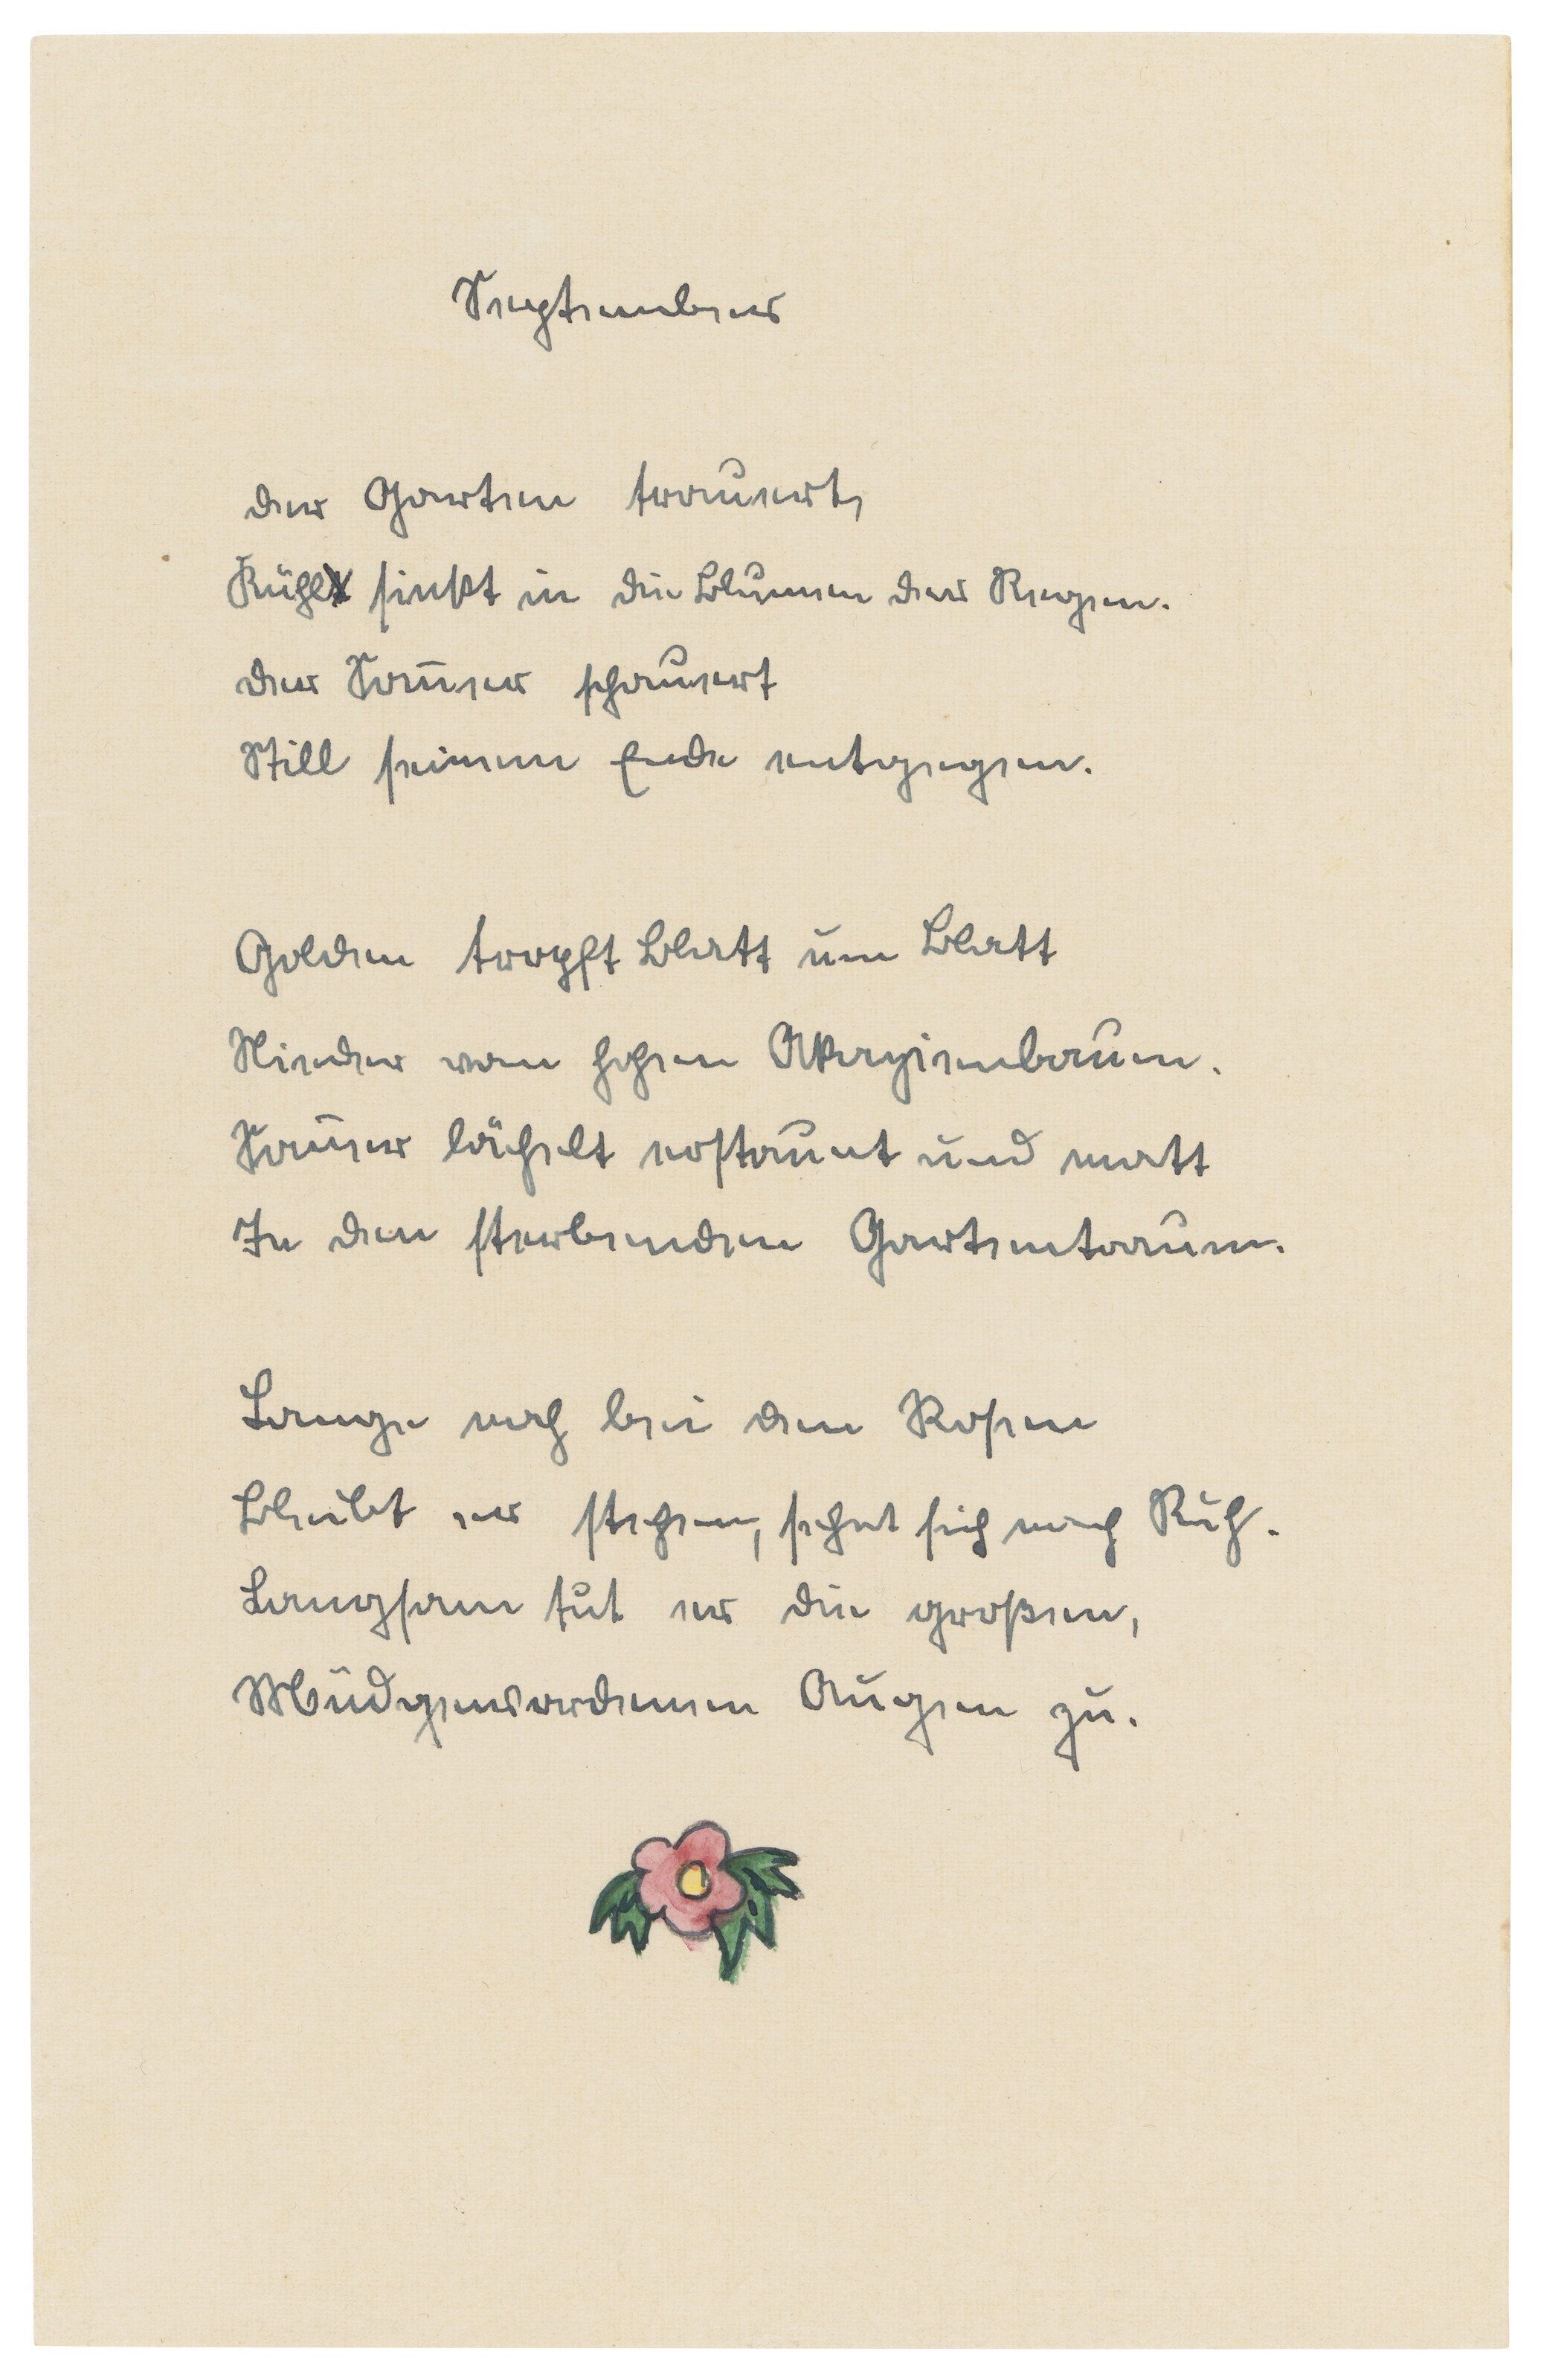 September
Der Garten trauert,
Kühl sinkt in die Blumen der Regen.
Der Som̅er schauert
Still seinem Ende entgegen.
Golden tropft Blatt um Blatt
Nieder vom hohen Akazienbaum.
Som̅er lächelt erstaunt und matt
In den sterbenden Gartentraum.
Lange noch bei den Rosen
Bleibt er stehen, sehnt sich nach Ruh.
Langsam tut er die großen,
Müdgewordenen Augen zu.